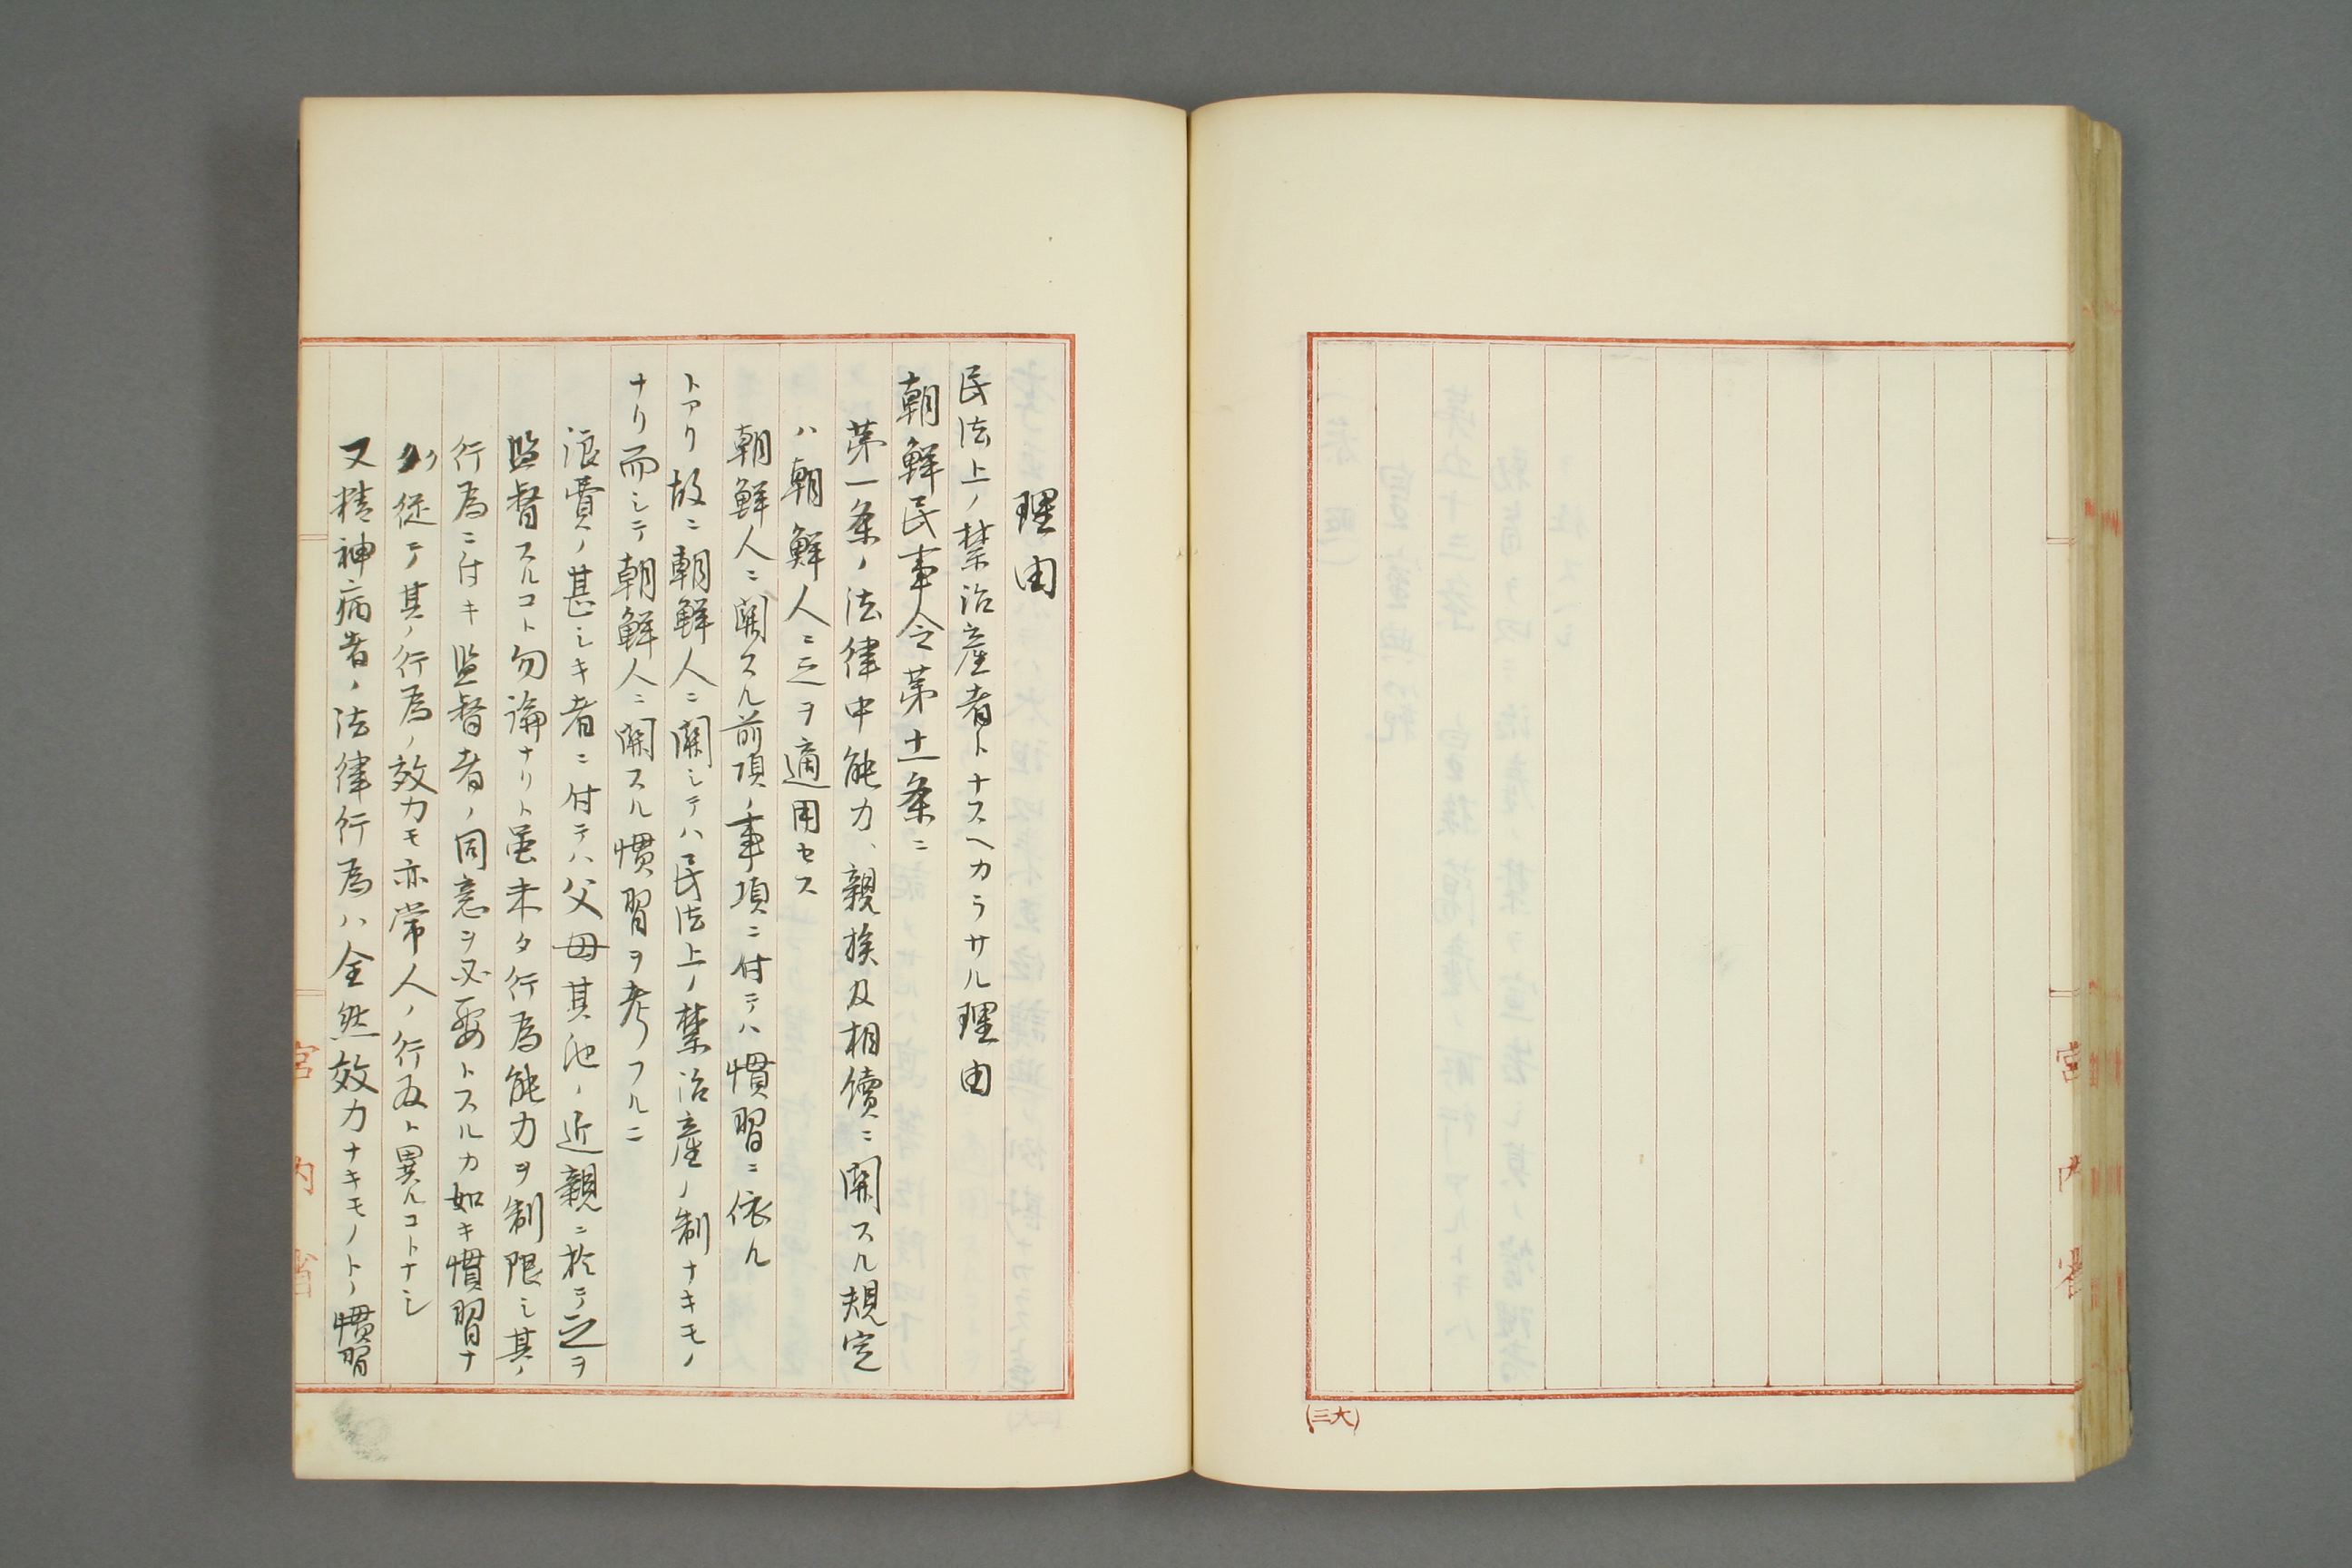 理由
民法上ノ禁治産者トナスヘカラサル理由
朝鮮民事令第十一条ニ
第一条ノ法律中能力、親族及相續ニ関スル規定
ハ朝鮮人ニ之ヲ適用セス
朝鮮人ニ関スル前項ノ事項ニ付テハ慣習ニ依ル
トアリ故ニ朝鮮人ニ関シテハ民法上ノ禁治産ノ制ナキモノ
ナリ而シテ朝鮮人ニ関スル慣習ヲ考フルニ
浪費ノ甚シキ者ニ付テハ父母其他ノ近親ニ於テ之ヲ
監督スルコト勿論ナリト虽未タ行為能力ヲ制限シ其ノ
行為ニ付キ監督者ノ同意ヲ必要トスルカ如キ慣習ナ
ク従テ其ノ行為ノ效力モ亦常人ノ行為ト異ルコトナシ
又精神病者ノ法律行為ハ全然效力ナキモノトノ慣習
宮内省
宮内省
(大三)